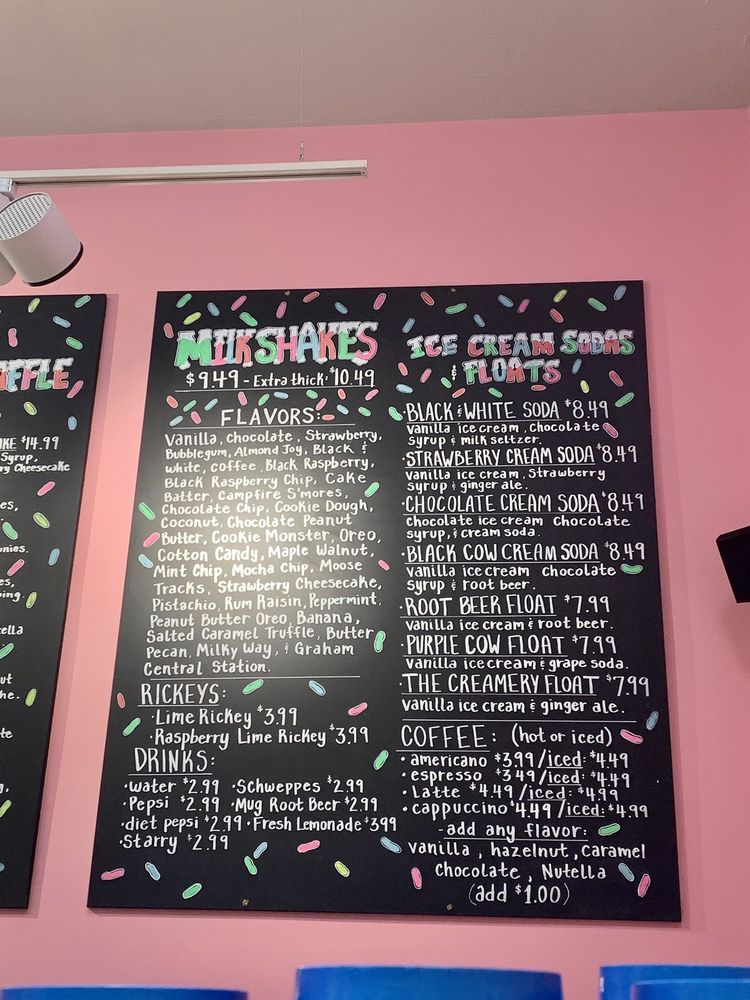 AFFLE
KE $14.99
Syrup,
ry Cheesecake
es,
onies.
es,
ping.
tella
ut
he.
te
MILKSHAKES
$9.49 - Extra thick: $10.49
FLAVORS:
Vanilla, Chocolate, Strawberry,
Bubblegum, Almond Joy, Black &
White, Coffee, Black Raspberry,
Black Raspberry Chip, Cake
Batter, Campfire S'mores,
Chocolate Chip, Cookie Dough,
Coconut, Chocolate Peanut
Butter, Cookie Monster, Oreo,
Cotton Candy, Maple Walnut,
Mint Chip, Mocha Chip, Moose
Tracks, Strawberry Cheesecake,
Pistachio, Rum Raisin, Peppermint,
Peanut Butter Oreo, Banana,
Salted Caramel Truffle, Butter
Pecan, Milky Way, & Graham
Central Station.
RICKEYS:
·Lime Rickey $3.99
·Raspberry Lime Rickey $3.99
DRINKS:
·water $2.99 ·Schweppes $2.99
·Pepsi $2.99 ·Mug Root Beer $2.99
·diet pepsi $2.99 ·Fresh Lemonade $3.99
·Starry $2.99
ICE CREAM SODAS
& FLOATS
·BLACK & WHITE SODA $8.49
vanilla ice cream, chocolate
syrup & milk seltzer.
·STRAWBERRY CREAM SODA $8.49
vanilla ice cream, Strawberry
syrup & ginger ale.
·CHOCOLATE CREAM SODA $8.49
chocolate ice cream chocolate
syrup, & cream soda.
·BLACK COW CREAM SODA $8.49
vanilla ice cream chocolate
syrup & root beer.
·ROOT BEER FLOAT $7.99
vanilla ice cream & root beer.
·PURPLE COW FLOAT $7.99
vanilla ice cream & grape soda.
·THE CREAMERY FLOAT $7.99
vanilla ice cream & ginger ale.
COFFEE: (hot or iced)
·americano $3.99/iced: $4.49
·espresso $3.49/iced: $4.49
·Latte $4.49/iced: $4.99
·cappuccino $4.49/iced: $4.99
-add any flavor:
vanilla, hazelnut, caramel
Chocolate, Nutella
(add $1.00)